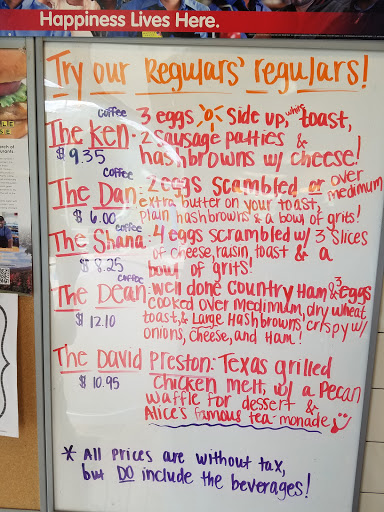 Happiness Lives Here.
Try our Regulars' regulars!
coffee
The Ken: 3 eggs side up, white toast,
$9.35 2 sausage patties &
hashbrowns w/ cheese!
coffee
The Dan: 2 eggs scambled or over medimum
$6.00 extra butter on your toast,
plain hashbrowns & a bowl of grits!
coffee
The Shana: 4 eggs scrambled w/ 3 slices
$8.25 of cheese, raisin toast & a
bowl of grits!
coffee
The Dean: well done country Ham & 3 eggs
cooked over medimum, dry wheat
$12.10 toast, & Large Hashbrowns crispy w/
onions, cheese, and Ham!
The David Preston: Texas grilled
$10.95 chicken melt, w/ a Pecan
waffle for dessert &
Alice's famous tea-monade
* All prices are without tax,
but DO include the beverages!